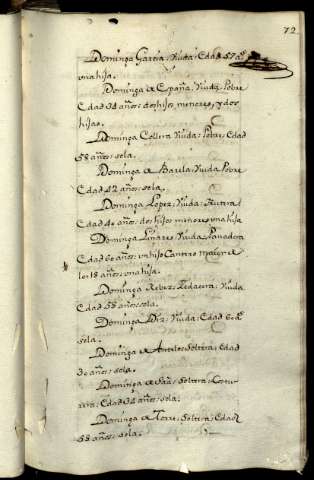 72
Dominga Garcia, Viuda: Edad 57 as.
una hija.
Dominga de España, Viuda, Pobre
Edad 34 años: dos hijos menores, y dos
hijas.
Dominga Viuda: Pobre, Edad
58 años: sola.
Dominga de Viuda Pobre
Edad 42 años, sola.
Dominga Lopez, Viuda:
Edad 40 años: dos hijos menores una hija
Dominga Linares Viuda, Panadera
Edad 60 años: un hijo Cantero maior de
los 18 años: una hija.
Dominga Viuda
Edad 58 años, sola.
Dominga Viuda: Edad 60
sola.
Dominga de Soltera, Edad
30 años, sola.
Dominga de Saa, Soltera, Costu-
rera: Edad 34 años; sola.
Dominga de Torre, Soltera: Edad
58 años: sola.